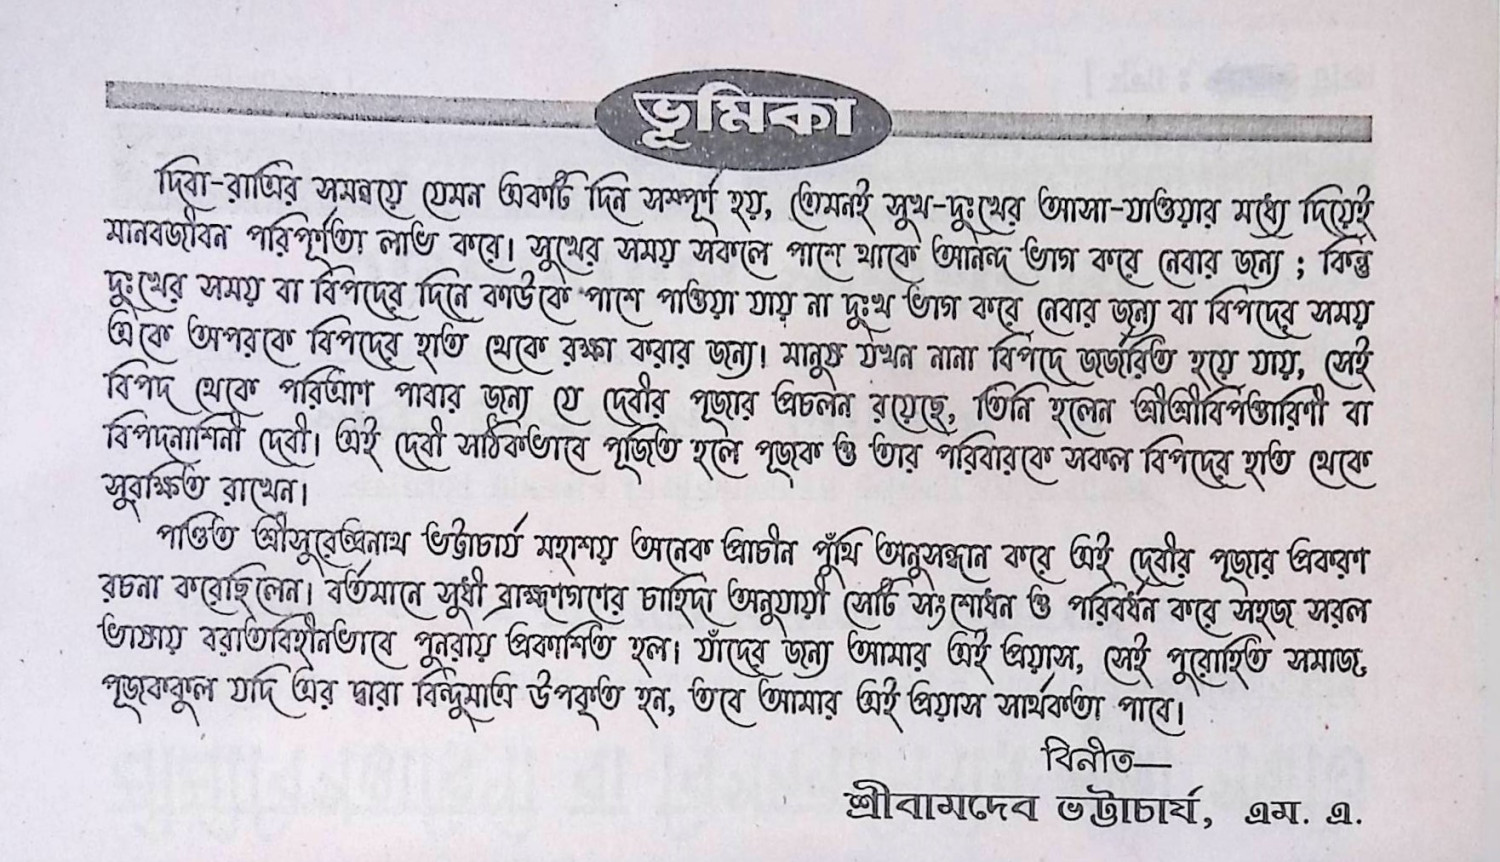 ভূমিকা
দিবা-রাত্রির সমন্বয়ে যেমন একটি দিন সম্পূর্ণ হয়, তেমনই সুখ-দুঃখের আসা-যাওয়ার মধ্যে দিয়েই
মানবজীবন পরিপূর্ণতা লাভ করে। সুখের সময় সকলে পাশে থাকে আনন্দ ভাগ করে নেবার জন্য ; কিন্তু
দুঃখের সময় বা বিপদের দিনে কাউকে পাশে পাওয়া যায় না দুঃখ ভাগ করে নেবার জন্য বা বিপদের সময়
একে অপরকে বিপদের হাত থেকে রক্ষা করার জন্য। মানুষ যখন নানা বিপদে জর্জরিত হয়ে যায়, সেই
বিপদ থেকে পরিত্রাণ পাবার জন্য যে দেবীর পূজার প্রচলন রয়েছে, তিনি হলেন শ্রীশ্রীবিপত্তারিণী বা
বিপদনাশিনী দেবী। এই দেবী সঠিকভাবে পূজিত হলে পূজক ও তার পরিবারকে সকল বিপদের হাত থেকে
সুরক্ষিত রাখেন।
পণ্ডিত শ্রীসুরেন্দ্রনাথ ভট্টাচার্য মহাশয় অনেক প্রাচীন পুঁথি অনুসন্ধান করে এই দেবীর পূজার প্রকরণ
রচনা করেছিলেন। বর্তমানে সুধী ব্রাহ্মণগণের চাহিদা অনুযায়ী সেটি সংশোধন ও পরিবর্ধন করে সহজ সরল
ভাষায় বরাতবিহীনভাবে পুনরায় প্রকাশিত হল। যাঁদের জন্য আমার এই প্রয়াস, সেই পুরোহিত সমাজ,
পূজককুল যদি এর দ্বারা বিন্দুমাত্র উপকৃত হন, তবে আমার এই প্রয়াস সার্থকতা পাবে।
বিনীত—
শ্রীবামদেব ভট্টাচার্য, এম. এ.